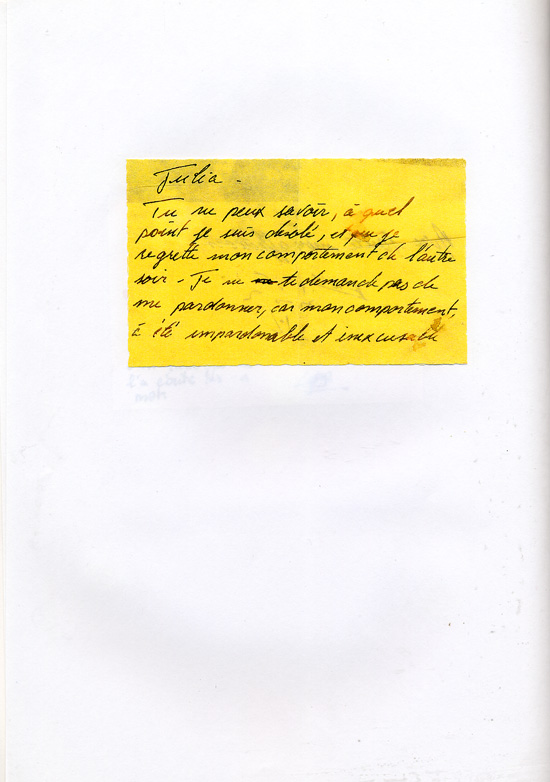 Julia -
Tu ne peux savoir, à quel
point je suis désolé, et que je
regrette mon comportement de l'autre
soir - Je ne te demande pas de
me pardonner, car mon comportement,
à été impardonable et inexcusable